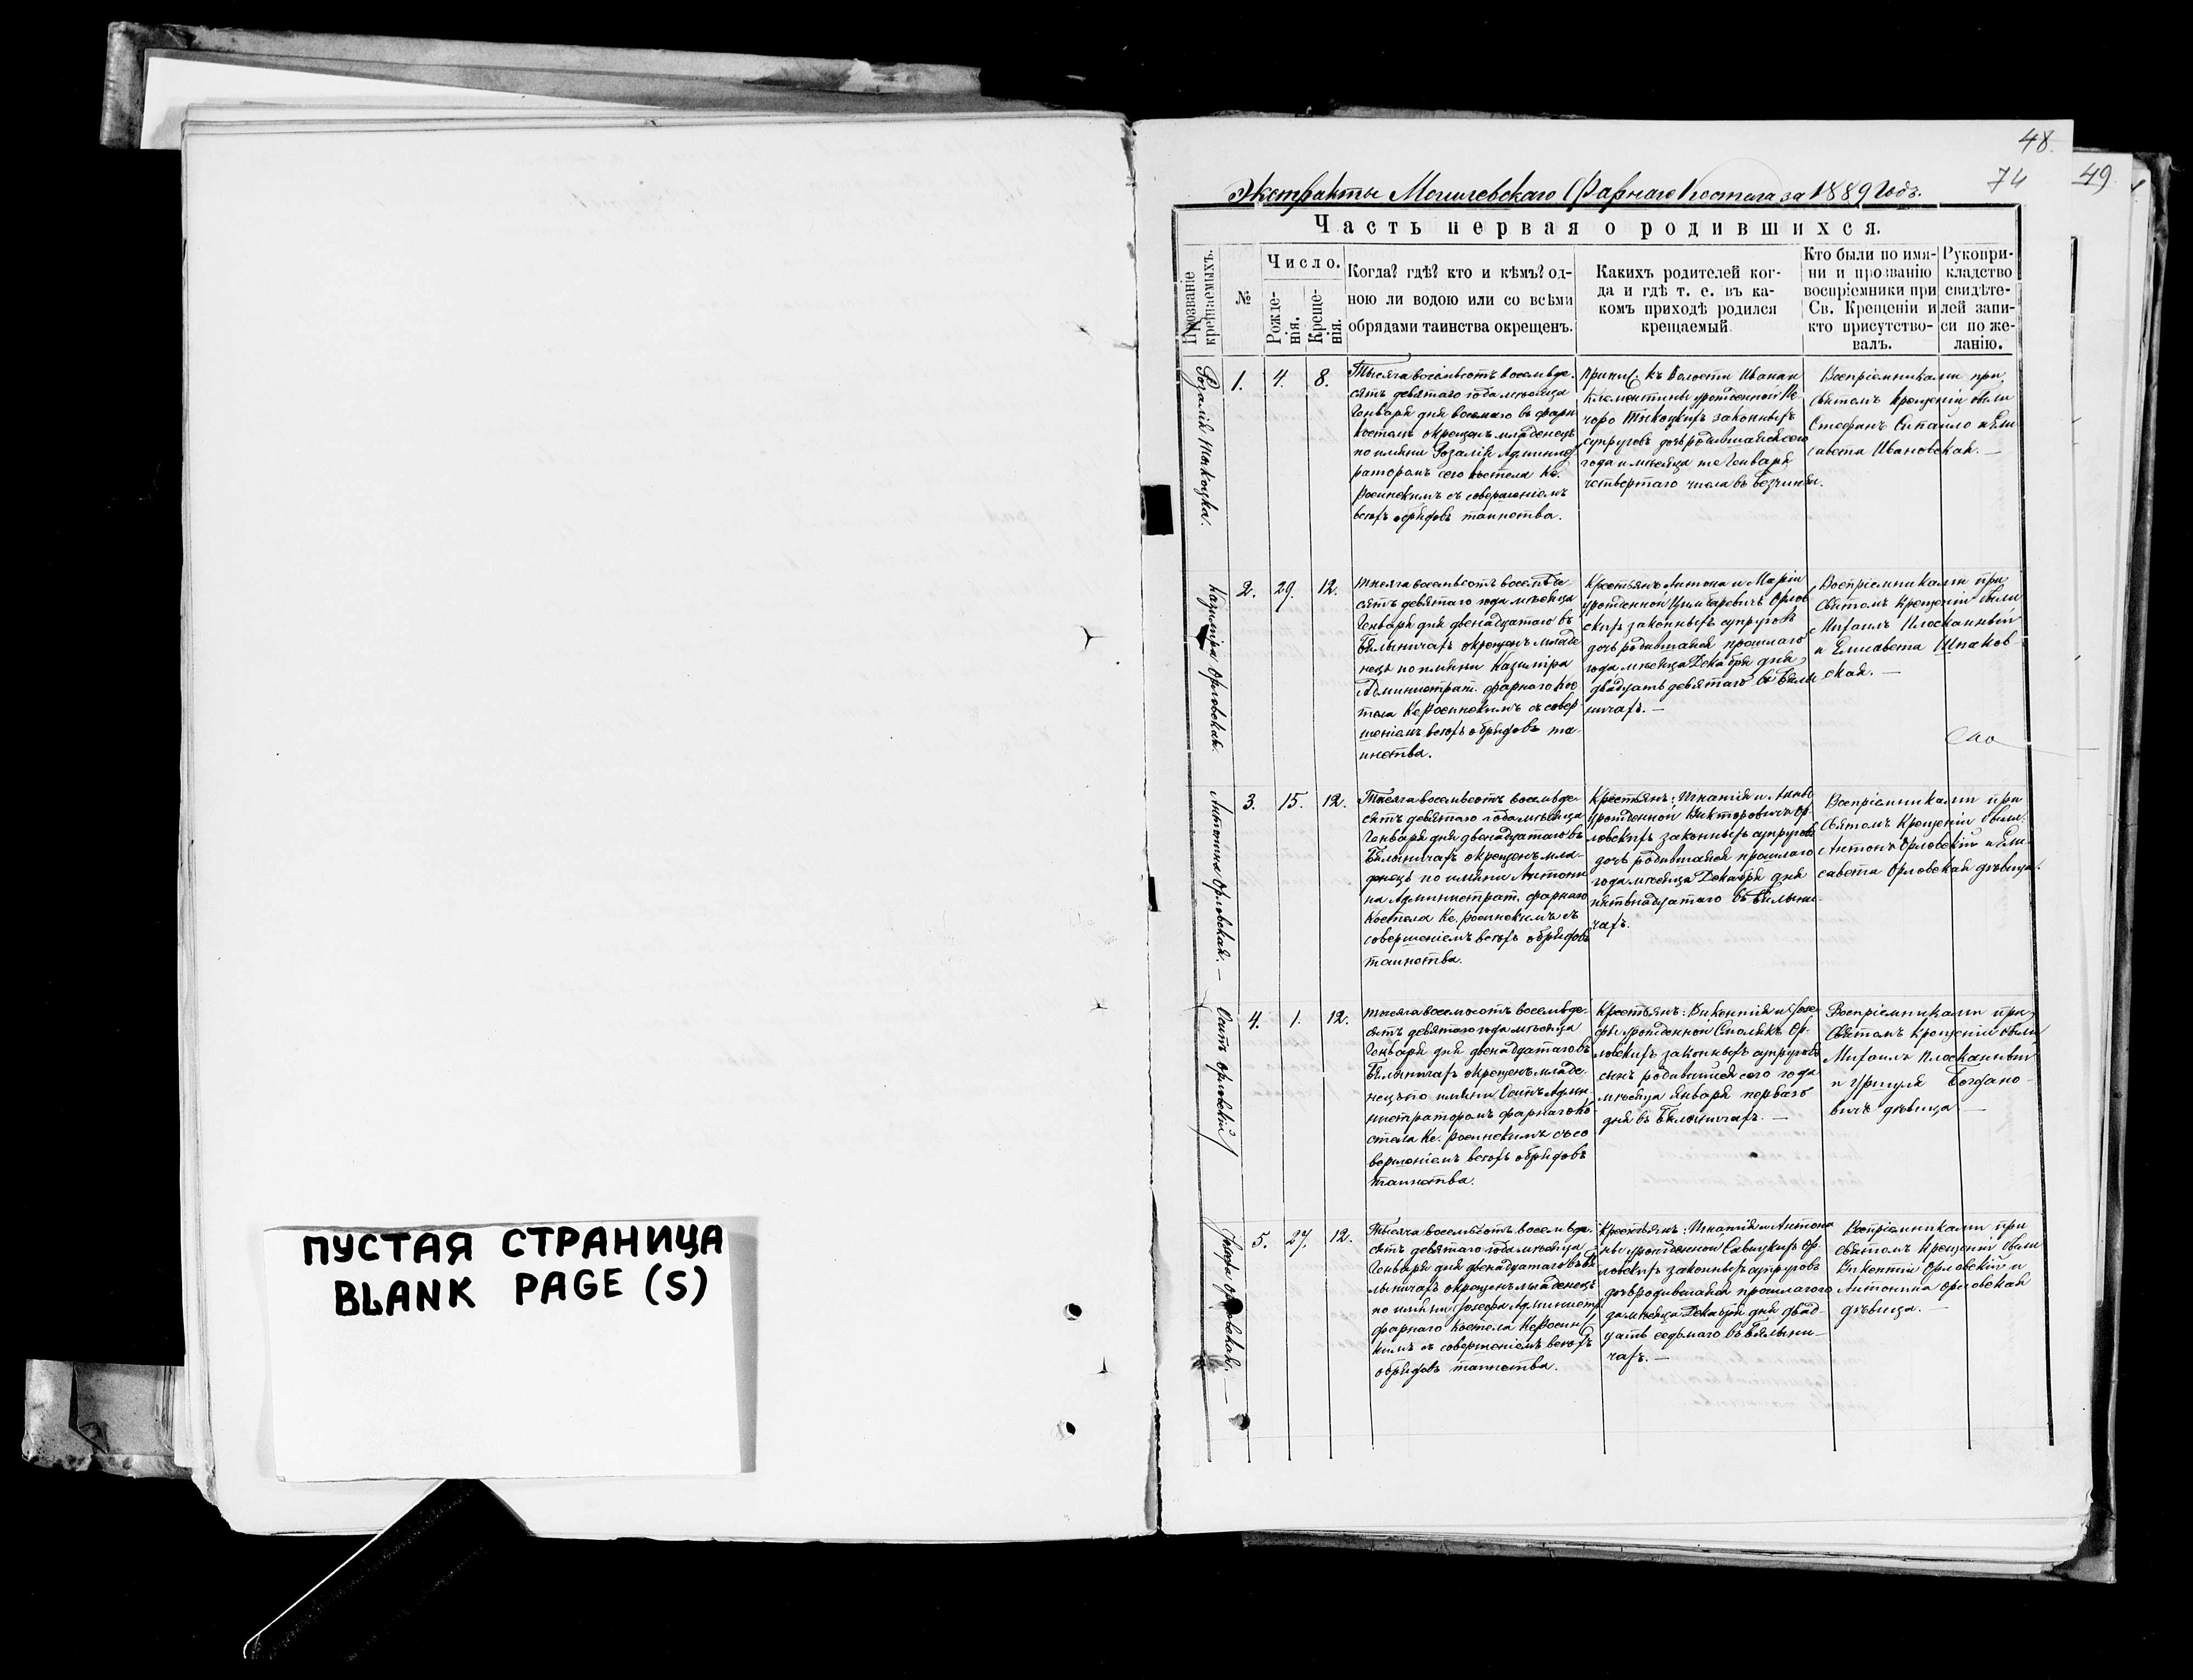 ПУСТАЯ СТРАНИЦА
BLANK PAGE (S)
48.
74
49
Экстракты Могилевскаго Фарнаго Костела за 1889 Годъ.
Часть первая о родившихся.
Прозваніе крещаемыхъ.
№
Число.
Рожденія.
Крещенія.
Когда? гдѣ? кто и кѣмъ? од-
ною ли водою или со всѣми
обрядами таинства окрещенъ.
Какихъ родителей ког-
да и гдѣ т. е. въ ка-
комъ приходѣ родился
крещаемый.
Кто были по имя-
ни и прозванію
воспріемники при
Св. Крещеніи и
кто присутство-
валъ.
Рукопри-
кладство
свидѣте-
лей запи-
си по же-
ланію.
Розалія
1.
4.
8.
Тысяча восемьсотъ восемьде-
сятъ девятаго года мѣсяца
Генваря дня восьмаго въ фарн
костелѣ окрещенъ младенецъ
по имяни Розалія Администр
раторомъ сего костела Кс.
Росинскимъ съ совершеніемъ
всѣхъ обрядовъ таинства.
къ волости Ивана и
Клементины урожденной
законныхъ
супруговъ дочь родившаяся сего
года и мѣсяца Генваря
четвертаго числа въ
Воспріемниками при
Святомъ Крещеніи были
Стефанъ и Ели
савета Ивановская. —
Казиміра Орловская.
2.
29.
12.
Тысяча восемьсотъ восемьде
сятъ девятаго года мѣсяца
Генваря дня двенадцатаго въ
Бялыничахъ окрещенъ младе
нецъ по имяни Казиміра
Администрат. фарнаго Кос
тела Кс Росинскимъ съ совер
шеніемъ всѣхъ обрядовъ та-
инства.
Крестьянъ Антона и Маріи
урожденной Цимбаревичъ Орлов
скихъ законныхъ супруговъ
дочь родившаяся прошлаго
года мѣсяца Декабря дня
двадцать девятаго въ Бялы
ничахъ. —
Воспріемниками при
Святомъ Крещеніи были
Михаилъ Плоскинный
и Елисавета Шпаков
ская. —
Антонина Орловская. —
3.
15.
12.
Тысяча восемьсотъ восемьде-
сятъ девятаго года мѣсяца
Генваря дня двенадцатаго въ
Бялыничахъ окрещенъ мла-
денецъ по имяни Антони
на Администрат. фарнаго
Костела Кс. Росинскимъ съ
совершеніемъ всѣхъ обрядовъ
таинства.
Крестьянъ: Игнатія и Анны
урожденной Викторовичъ Ор-
ловскихъ законныхъ супруговъ
дочь родившаяся прошлаго
года мѣсяца Декабря дня
пятьнадцатаго въ Бялыни-
чахъ.
Воспріемниками при
Святомъ Крещеніи были
Антонъ Орловскій и Ели-
савета Орловская дѣвица.
Осипъ Орловскій
4.
1.
12.
Тысяча восемьсотъ восемьде-
сятъ девятаго года мѣсяца
Генваря дня двенадцатаго въ
Бялыничахъ окрещенъ младе-
нецъ по имяни Осипъ Адми
нистраторомъ фарнаго Ко
стела Кс. Росинскимъ съ со
вершеніемъ всѣхъ обрядовъ
таинства.
Крестьянъ: Викентія и Юзе
фы урожденной Смолякъ Ор-
ловскихъ законныхъ супруговъ
сынъ родившійся сего года
мѣсяца Января перваго
дня въ Бялыничахъ. —
Воспріемниками при
Святомъ Крещеніи были
Михаилъ Плоскинный
и Уршуля Богдано-
вичъ дѣвица —
Юзефа Орловская. —
5.
27.
12.
Тысяча восемьсотъ восемьде-
сятъ девятаго года мѣсяца
Генваря дня двенадцатаго въ Бя
лыничахъ окрещенъ младенецъ
по имяни Юзефа Администр.
фарнаго Костела Кс Росин
кимъ съ совершеніемъ всѣхъ
обрядовъ таинства.
Крестьянъ: Игнатія и Антони
ны урожденной Савицкихъ Ор-
ловскихъ законныхъ супруговъ
дочь родившаяся прошлаго го
да мѣсяца Декабря дня двад-
цать седьмаго въ Бялыни-
чахъ. —
Воспріемниками при
Святомъ Крещеніи были
Викентій Орловскій и
Антонина Орловская
дѣвица. —